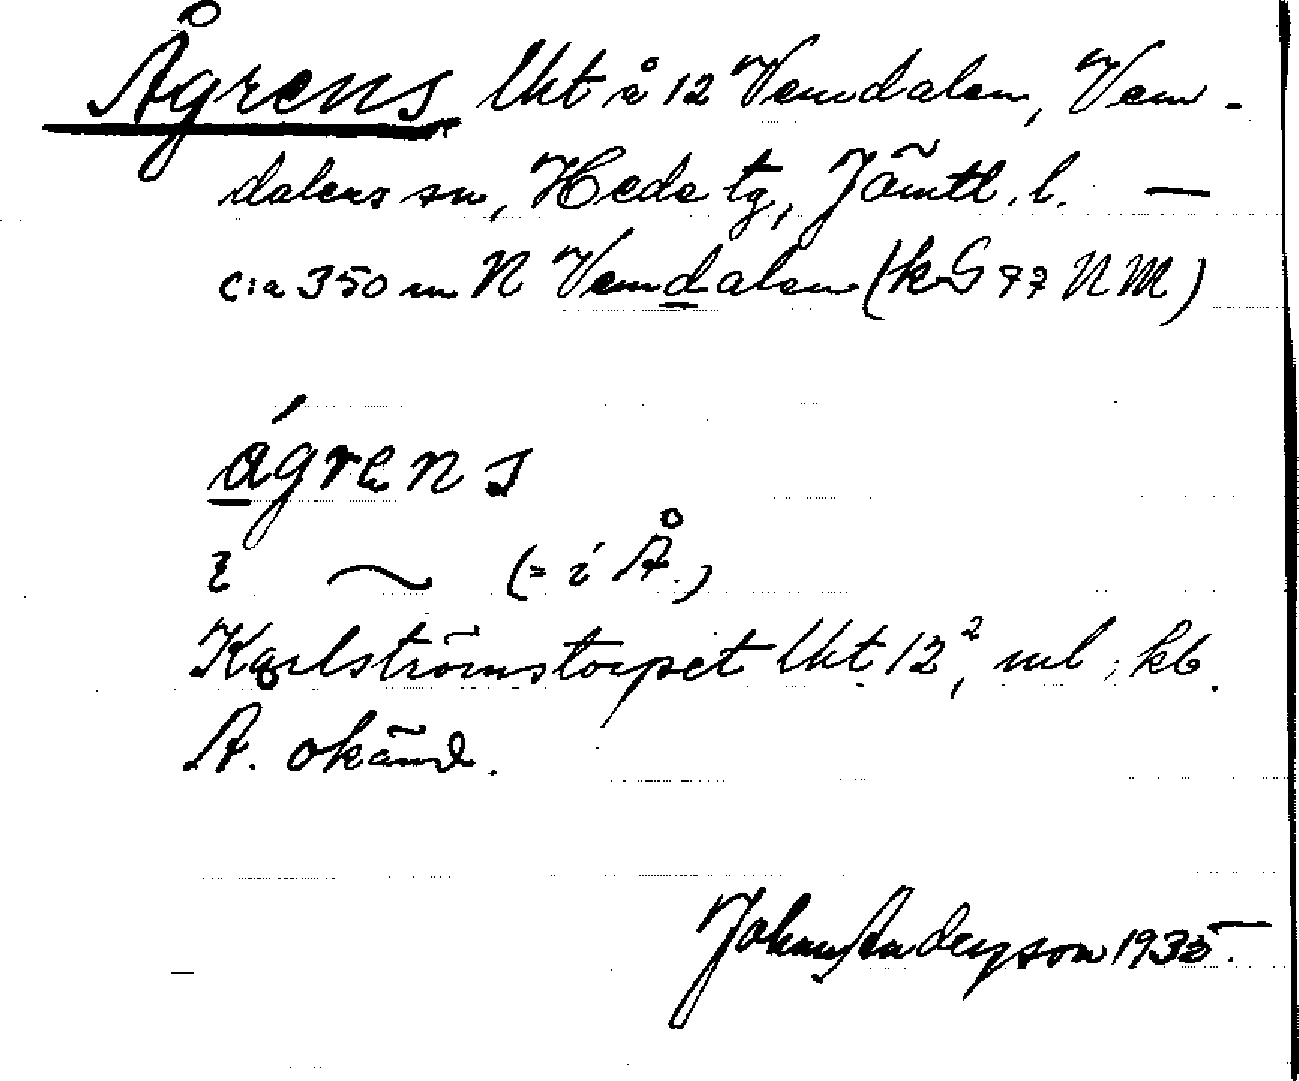 Ågrens lht å 12 Vemdalen, Vem-
dalens sn, Hede tg, Jämtl. l. —
c:a 350 m N Vemdalen (k G 77 N M)
ágrens
i ~ (= i Å.)
Karlströmstorpet lht 12², ml; kb.
Å. okänd.
John Anderson 1935.